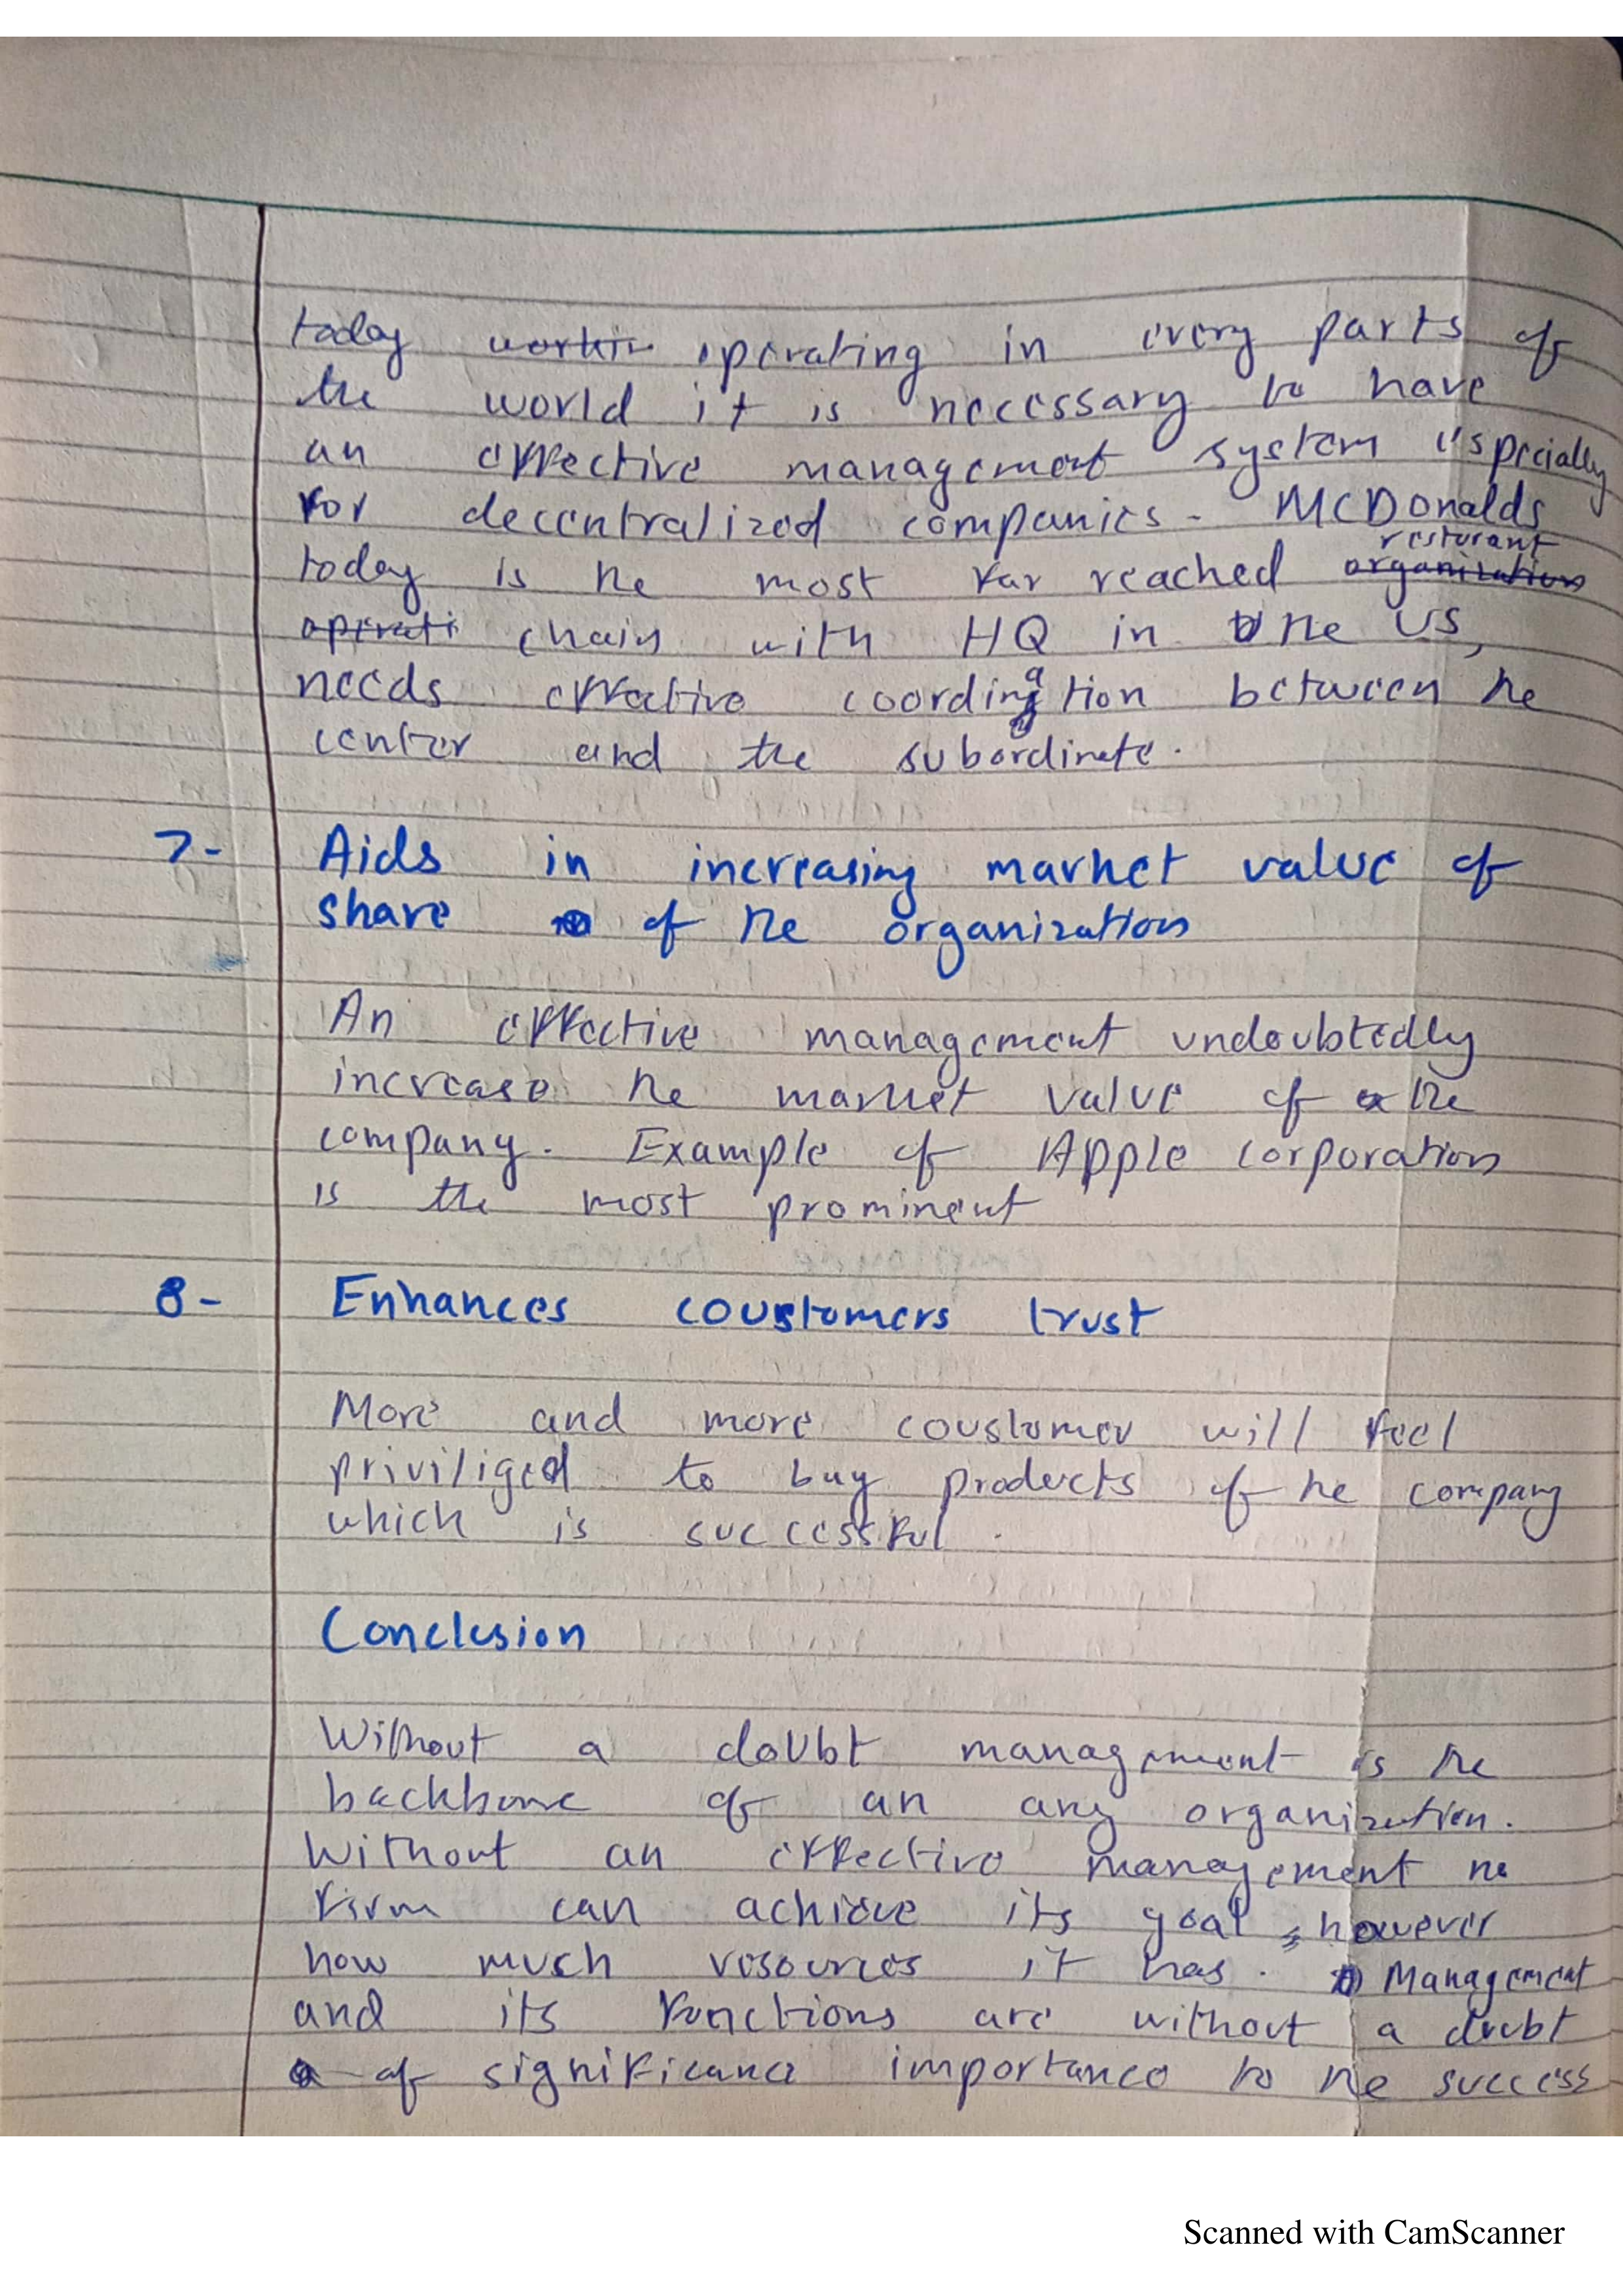 today workin operating in every parts of
the world it is necessary to have
an effective management system espcially
for decentralized companies. McDonalds
today is the most far reached organization resturant
operati chain with HQ in the US,
needs effective coordination between the
center and the subordinate.
7- Aids in increasing market value of
share of the organization
An effective management undoubtedly
increase the market value of the
company. Example of Apple corporation
is the most prominent
8- Enhances coustomers trust
More and more coustomer will feel
priviliged to buy products of the company
which is successful.
Conclusion
Without a doubt management is the
backbone of an any organization.
Without an effective management no
firm can achieve its goal, however
how much resources it has. Management
and its functions are without a doubt
of significance importance to the success
Scanned with CamScanner